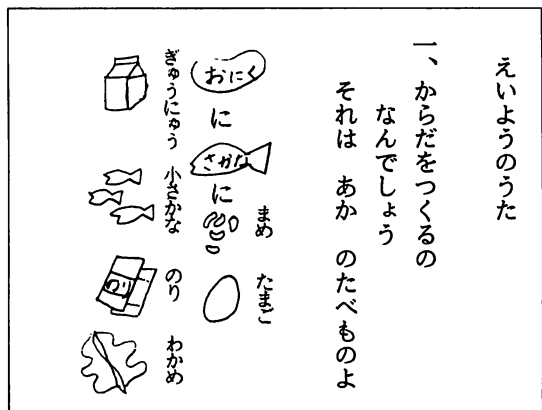 えいようのうた
一、からだをつくるの
なんでしょう
それは　あか　のたべものよ
まめ　たまご
おにく　に　さかな　に
ぎゅうにゅう　小さかな　のり　わかめ
のり